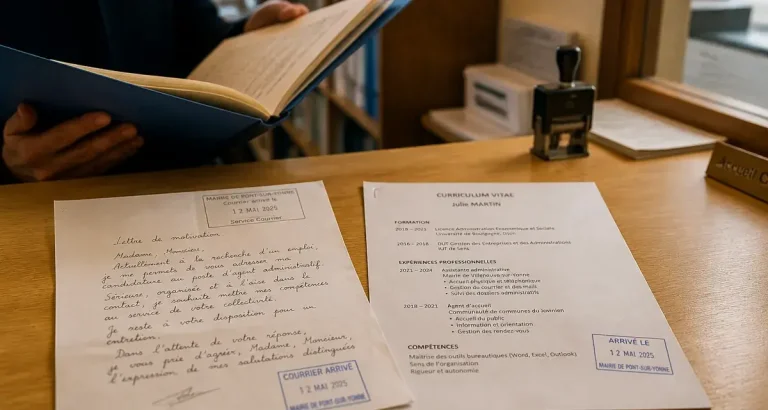 MAIRIE DE PONT-SUR-YONNE
Courrier arrivé le
12 MAI 2025
Service Courrier
Lettre de motivation
Madame, Monsieur,
Actuellement à la recherche d'un emploi,
je me permets de vous adresser ma
candidature au poste d'agent administratif.
Sérieuse, organisée et à l'aise dans le
contact, je souhaite mettre mes compétences
au service de votre collectivité.
Je reste à votre disposition pour un
entretien.
Dans l'attente de votre réponse,
je vous prie d'agréer, Madame, Monsieur,
l'expression de mes salutations distinguées
COURRIER ARRIVÉ
12 MAI 2025
MAIRIE DE PONT-SUR-YONNE
CURRICULUM VITAE
Julie MARTIN
FORMATION
Licence Administration Économique et Sociale
Université de Bourgogne, Dijon
2016 - 2018 DUT Gestion des Entreprises et des Administrations
IUT de Sens
EXPÉRIENCES PROFESSIONNELLES
2021 - 2024 Assistante administrative
Mairie de Villeneuve-sur-Yonne
• Accueil physique et téléphonique
• Gestion du courrier et des mails
• Suivi des dossiers administratifs
2018 - 2021 Agent d'accueil
Communauté de communes du Jovinien
• Accueil du public
• Information et orientation
• Gestion des rendez-vous
COMPÉTENCES
Maîtrise des outils bureautiques (Word, Excel, Outlook)
Sens de l'organisation
Rigueur et autonomie
ARRIVÉ LE
12 MAI 2025
MAIRIE DE PONT-SUR-YONNE
Accueil